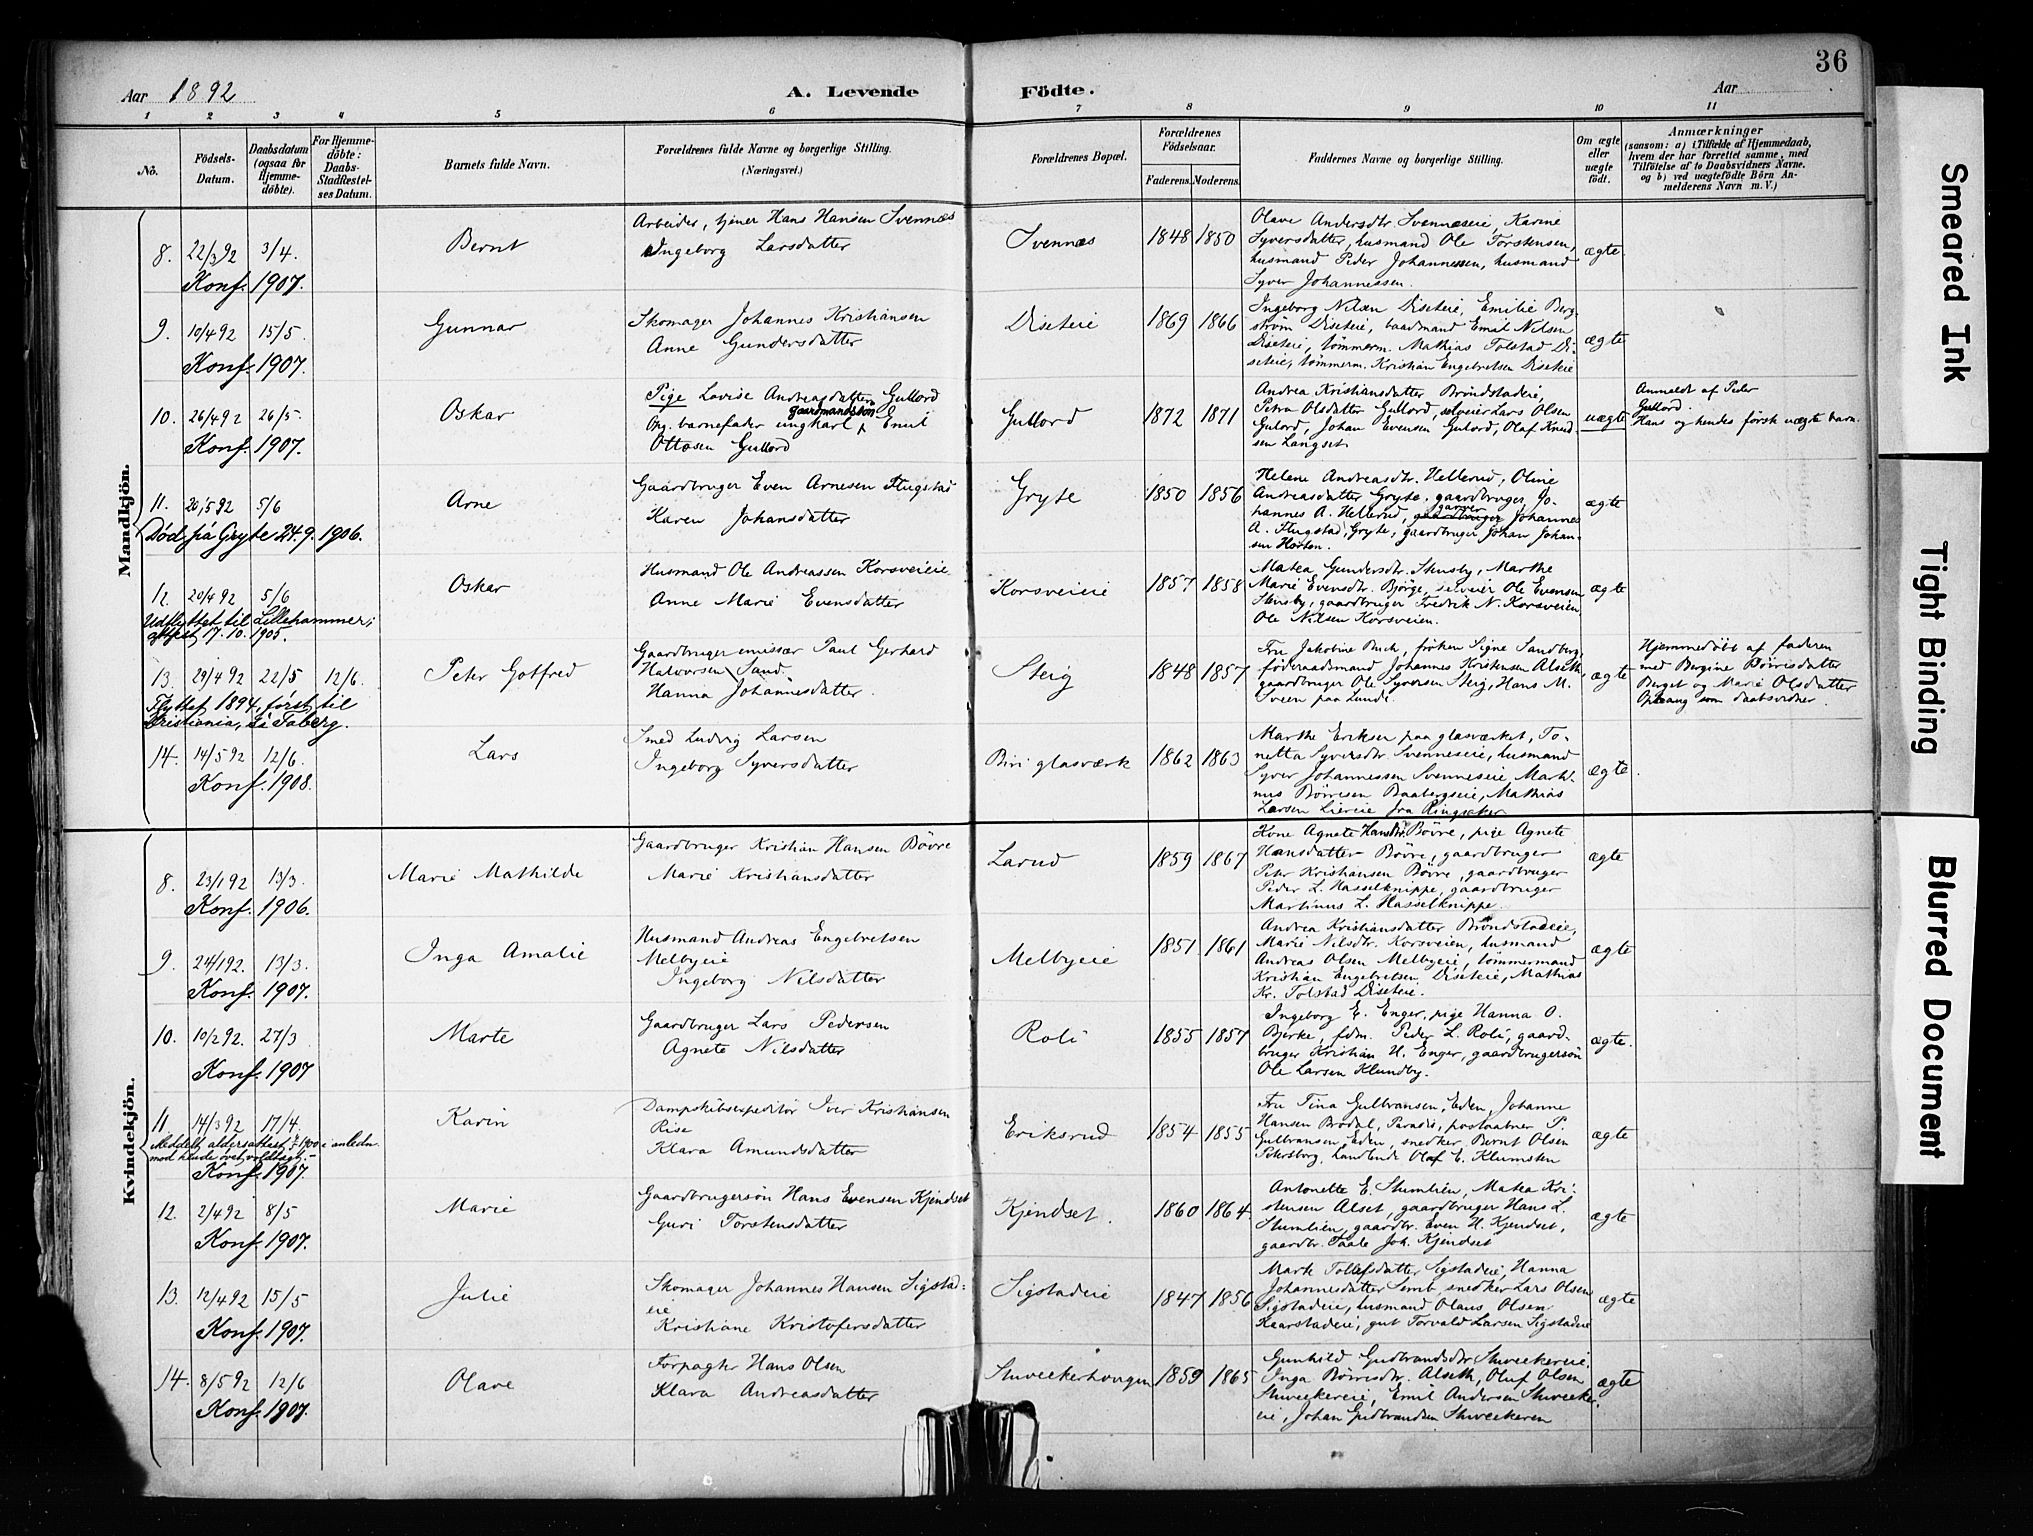 36
Aar 1892
A. Levende Födte.
Aar
1 2 3 4 5 6 7 8 9 10 11
No.
Födsels-Datum.
Daabsdatum (ogsaa for Hjemme-döbte).
For Hjemme-döbte: Daabs-Stadfæstel-ses Datum.
Barnets fulde Navn.
Forældrenes fulde Navne og borgerlige Stilling.
(Næringsvei.)
Forældrenes Bopæl.
Forældrenes Födselsaar.
Faderens. Moderens.
Faddernes Navne og borgerlige Stilling.
Om ægte eller uægte födt.
Anmærkninger
(saasom: a) i Tilfælde af Hjemmedaab,
hvem der har forrettet samme, med
Tilföielse af to Daabsvidners Navne.
og b) ved uægtefödte Börn An-
melderens Navn m. V.)
Mandkjön.
8. 22/3 92 3/4. Bernt
Konf. 1907.
Arbeider, tjener Hans Hansen Svennæs
Ingeborg Larsdatter
Svennæs 1848 1850
Olave Andersdtr. Svennæseie, Karine
Syversdatter, husmand Ole Torstensen,
husmand Peder Johannessen, husmand
Syver Johannessen.
ægte.
9. 10/4 92 15/5. Gunnar
Konf. 1907.
Skomager Johannes Kristiansen
Anne Gundersdatter
Diseteie 1869 1866
Ingeborg Nilsen Diseteie, Emilie Berg-
ström Diseteie, baadmand Emil Nilsen
Diseteie, tömmerm. Mathias Tolstad Di-
seteie, tömmerm. Kristian Engebretsen Diseteie
ægte
10. 26/4 92 26/5. Oskar
Konf. 1907.
Pige Lovise Andreasdatter Gullord
Og. barnefader ungkarl gaardmandssön Emil
Ottosen Gullord
Gullord 1872 1871
Andrea Kristiansdatter Bröndstadeie,
Petra Olsdatter Gullord, selveier Lars Olsen
Gulord, Johan Evensen Gulord, Olaf Knud-
sen Langset.
uægte
Anmeldt af Peder
Gullord.
Hans og hendes förste uægte barn.
11. 20/5 92 5/6 Arne
Död på Gryte 24.9. 1906.
Gaardbruger Even Arnesen Flugstad
Karen Johansdatter
Gryte 1850 1856
Helene Andreasdtr. Hellerud, Oline
Andreasdatter Gryte, gaardbruger Jo-
hannes A. Hellerud, garver Johannes
A. Flugstad, Gryte, gaardbruger Johan Johan-
sen Horten.
ægte
12. 20/4 92 5/6 Oskar
Udflyttet til Lillehammer;
attest 17.10. 1905.
Husmand Ole Andreassen Korsveieie
Anne Marie Evensdatter
Korsveieie 1857 1858
Matea Gundersdtr. Stensby, Marthe
Marie Evensdtr. Björge, selveier Ole Evensen
Stensby, gaardbruger Fredrik N. Korsveien
Ole Nilsen Korsveien.
ægte
13. 29/4 92 22/5 12/6. Peter Gotfred
Flyttet 1894, först til
Kristiania, til Faberg.
Gaardbruger emissær Paul Gerhard
Halvorsen Sand.
Hanna Johannesdatter.
Steig 1848 1857
Fru Jakobine Buch, fröken Signe Sandberg,
föderaadsmand Johannes Kristensen Alseth,
gaardbruger Ole Syversen Steig, Hans M.
Sveen paa Lunde.
ægte
Hjemmedöbt af faderen
med Bergine Böirisdatter
Berget og Marie Olsdatter
Opsang som daabsvidner.
14. 14/5 92 12/6. Lars
Konf. 1908.
Smed Ludvig Larsen
Ingeborg Syversdatter
Biri glasværk 1862 1863
Marthe Eriksen paa glasværket, To-
netta Syversdtr. Svenneseie, husmand
Syver Johannessen Svenneseie, Marti-
nus Böiresen Baabergseie, Mathias
Larsen Liereie fra Ringsaker
ægte.
Kvindekjön.
8. 23/1 92 13/3. Marie Mathilde
Konf. 1906.
Gaardbruger Kristian Hansen Bövre
Marie Kristiansdatter
Larud 1859 1867
Kone Agnete Hansdtr. Bövre, pige Agnete
Hansdatter Bövre, gaardbruger
Peter Kristiansen Bövre, gaardbruger
Peder L. Hasselknippe, gaardbruger
Martinus L. Hasselknippe.
ægte
9. 24/1 92. 13/3. Inga Amalie
Konf. 1907.
Husmand Andreas Engebretsen
Melbyeie
Ingeborg Nilsdatter
Melbyeie 1851 1861
Andrea Kristiansdatter Bröndstadeie,
Marie Nilsdtr. Korsveien, husmand
Andreas Olsen Melbyeie, tömmermand
Kristian Engebretsen Diseteie, Mathias
Kr. Tolstad Diseteie.
ægte
10. 10/2 92. 27/3 Marte
Konf. 1907
Gaardbruger Lars Pedersen
Agnete Nilsdatter
Roli 1855 1857
Ingeborg E. Enger, pige Hanna O.
Bjerke, fdm. Peder L. Roli, gaard-
bruger Kristian H. Enger, gaardbrugersön
Ole Larsen Klundby.
ægte.
11. 14/3 92 17/4. Karin
Meddelt aldersattest 1900 i anledn.
mod hende övet voldtægt.
Konf. 1907.
Dampskibsexpeditör Iver Kristiansen
Rise
Klara Amundsdatter
Eriksrud 1854 1855
Fru Tina Gulbransen, Eden, Johanne
Hansen Brödal, Paradis, postaabner P.
Gulbransen, Eden, snedker Bernt Olsen
Petersborg, Landhdl. Olaf E. Klumsten
ægte
12. 2/4 92 8/5 Marie
Konf. 1907.
Gaardbrugersön Hans Evensen Kjendset
Guri Torstensdatter
Kjendset. 1860 1864
Antonette E. Stumlien, Matea Kri-
stensen Alset, gaardbruger Hans L.
Stumlien, gaardbr. Even H. Kjendset,
gaardbr. Taale Joh. Kjendset
ægte
13. 12/4 92 15/5 Julie
Konf. 1907.
Skomager Johannes Hansen Sigstad-
eie
Kristiane Kristofersdatter
Sigstadeie 1847 1856
Marte Tollefsdatter Sigstadeie, Hanna
Johannesdatter Semb, snedker Lars Olsen
Sigstadeie, husmand Olaus Olsen
Kaarstadeie, gut Torvald Larsen Sigstadeie
ægte
14. 8/5 92 12/6 Olave
Konf. 1907.
Forpagter Hans Olsen
Klara Andreasdatter
Skveekerhougen 1859 1865
Gunhild Gudbrandsdtr Skveekereie,
Inga Böirisdtr. Alseth, Oluf Olsen
Skveekereie, Emil Andersen Skveeker-
eie, Johan Gudbrandsen Skveekeren
ægte
Smeared Ink
Tight Binding
Blurred Document